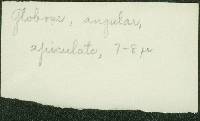 Globose, angular,
apiculate, 7-8 μ